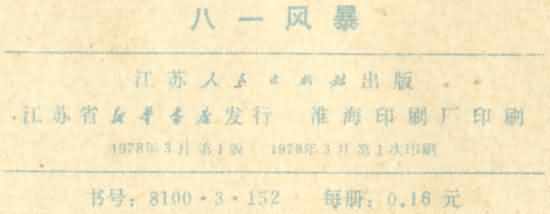 八一风暴
江苏人民出版社出版
江苏省新华书店发行 淮海印刷厂印刷
1978年3月第1版 1978年3月第1次印刷
书号：8100·3·152 每册：0.16元